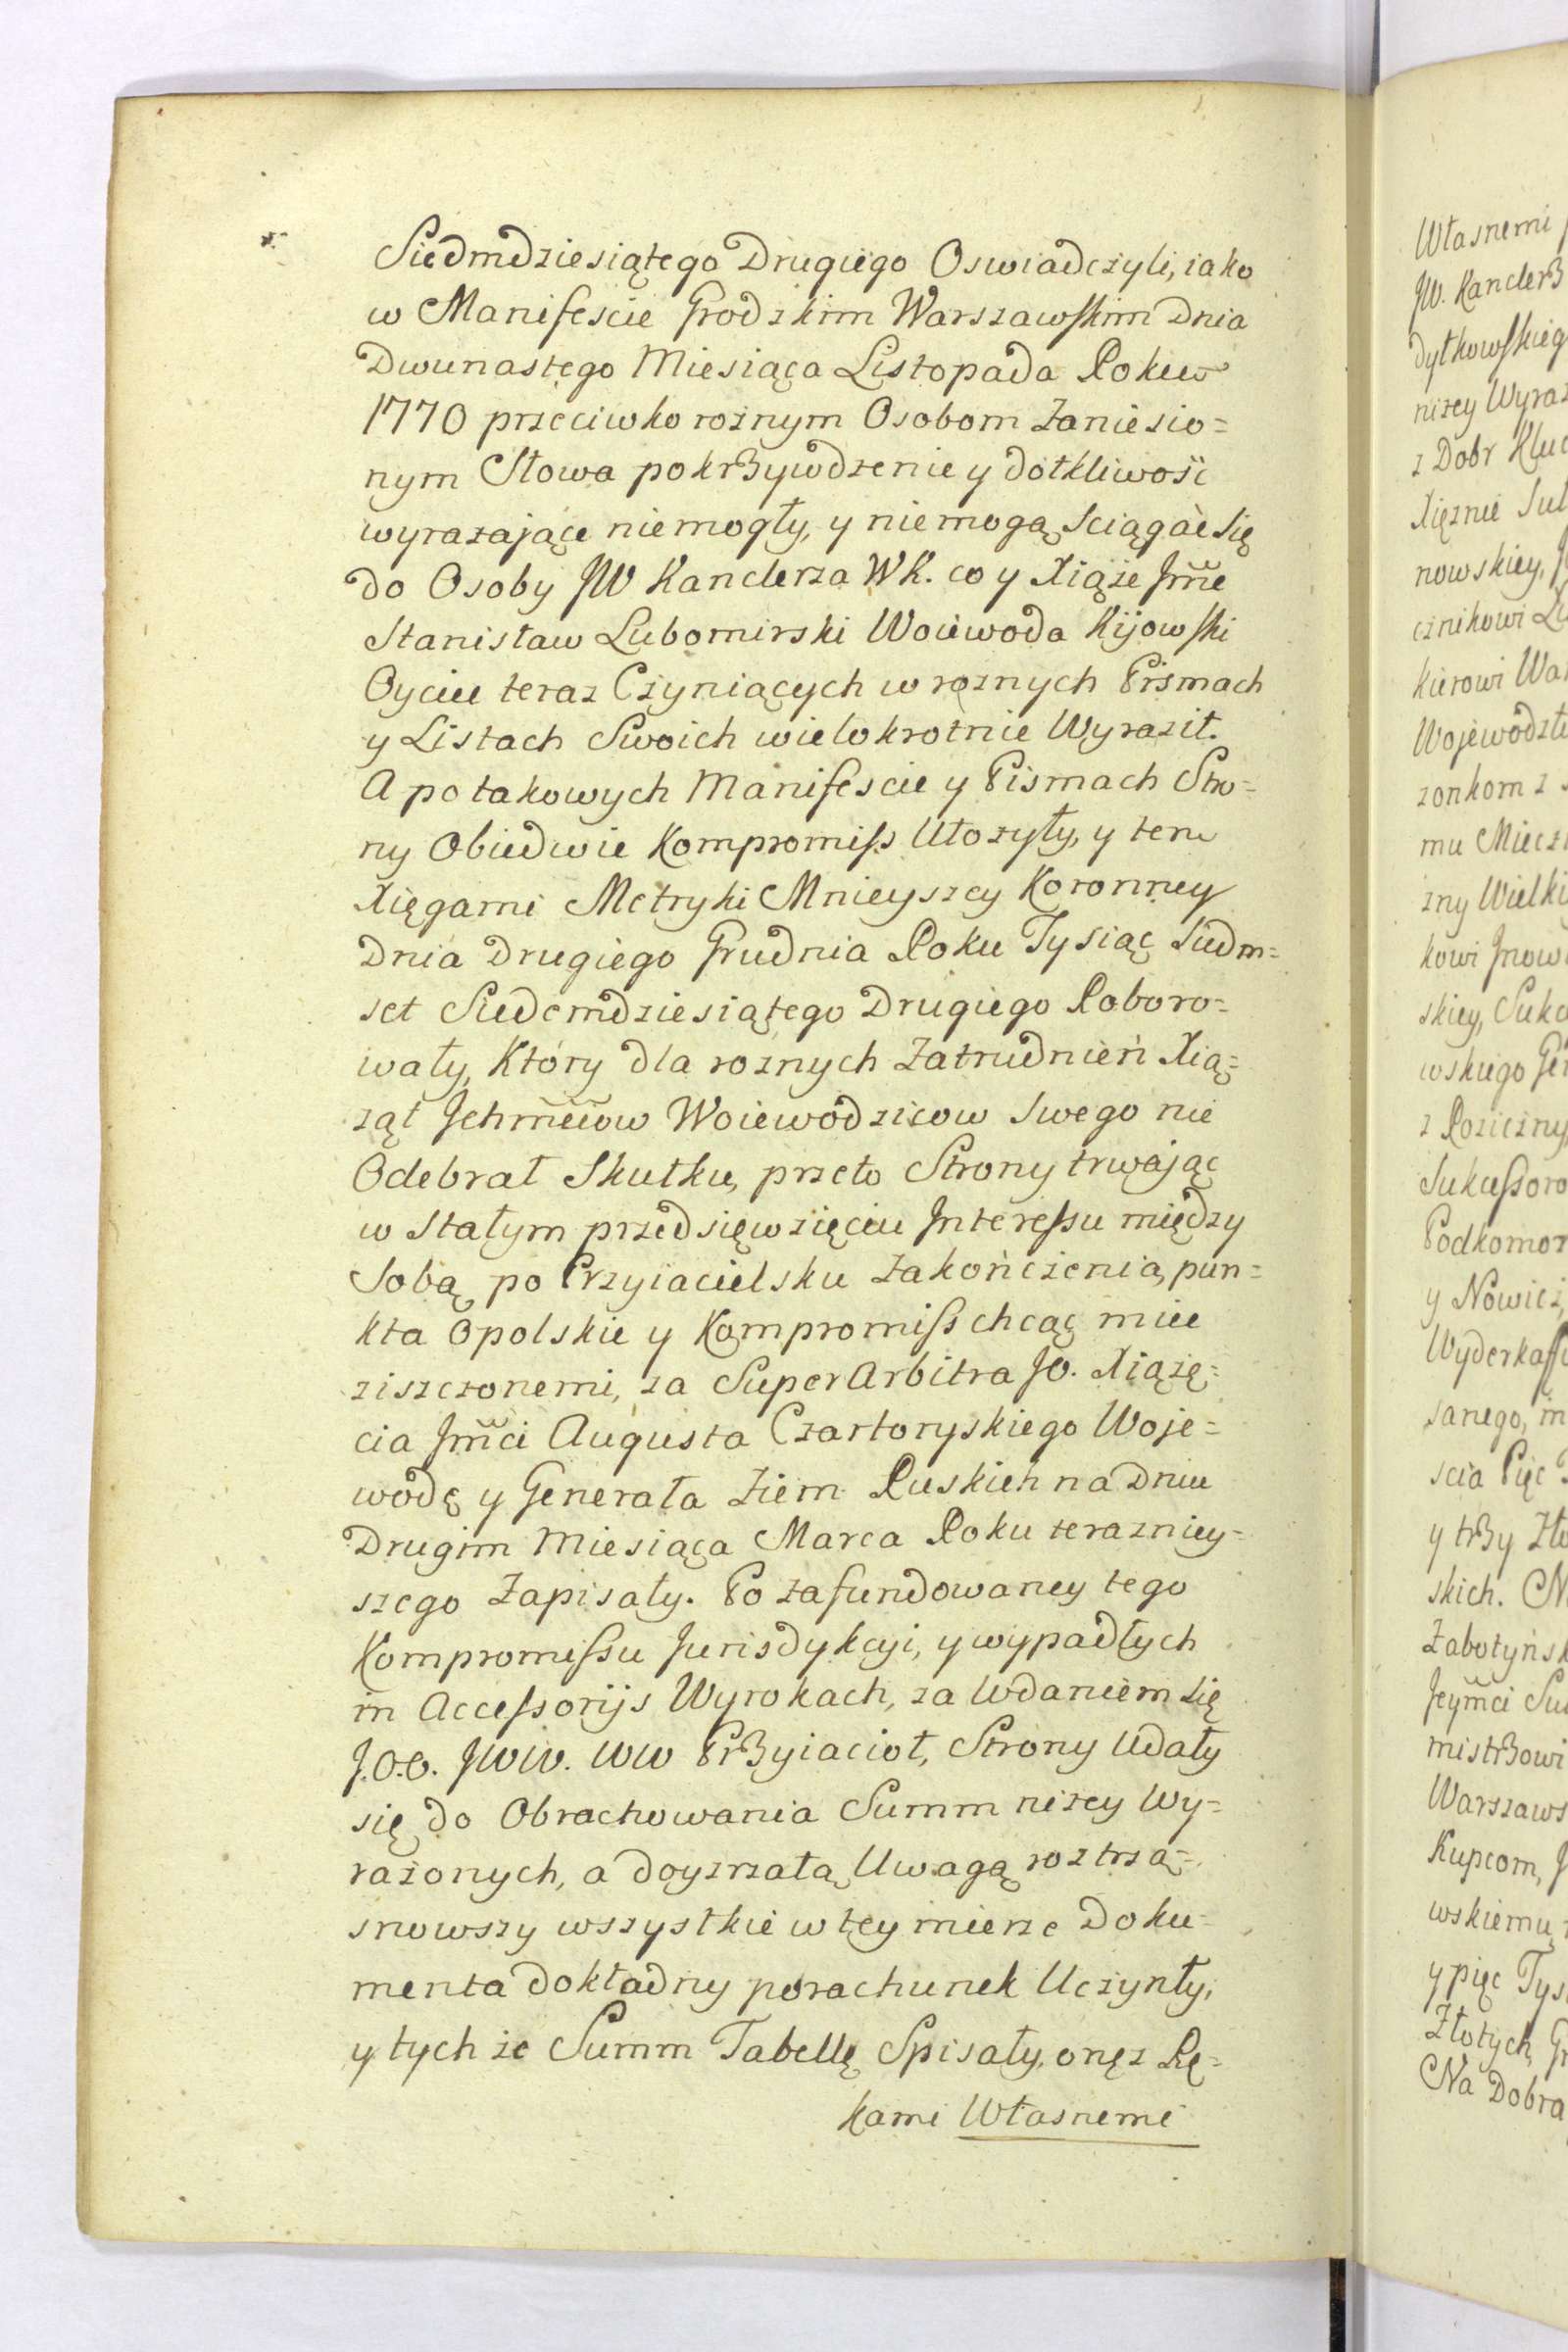 Siedmdziesiątego Drugiego Oswiadczyli, iako
w Manifescie Grodzkim Warszawskim Dnia
Dwunastego Miesiąca Listopada Roku
1770 przeciwko roznym Osobom Zaniesio=
nym Słowa pokrzywdzenie y dotkliwość
wyrazające niemogły, y niemogą sciągać się
do Osoby JW Kanclerza WK. co y Xiąże Jmć
Stanisław Lubomirski Woiewoda Kijowski
Oyciec teraz Czyniących w roznych Pismach
y Listach Swoich wielokrotnie Wyraził.
A po takowych Manifescie y Pismach Stro=
ny Obiedwie Kompromiss Ułozyły, y ten
Xięgami Metryki Mnieyszey Koronney
Dnia Drugiego Grudnia Roku Tysiąc Siedm=
set Siedemdziesiątego Drugiego Roboro=
wały, Który dla roznych Zatrudnień Xią=
ząt Jchmciow Woiewodzicow Swego nie
Odebrał Skutku, przeto Strony trwając
w Stałym przedsięwzięciu Jnteressu między
Sobą po Przyiacielsku Zakończenia, pun=
kta Opolskie y Kompromiss chcąc miec
ziszczonemi, za SuperArbitra JO. Xiążę=
cia Jmci Augusta Czartoryskiego Woje=
wodę y Generała Ziem Ruskich na Dniu
Drugim Miesiąca Marca Roku terazniey=
szego Zapisały. Po zafundowaney tego
Kompromissu Jurisdykcyi, y wypadłych
in Accessorijs Wyrokach, za Wdaniem się
J.O.O. JWW. WW Przyiacioł, Strony Udały
się do Obrachowania Summ nizey Wy=
rażonych, a doyzrzałą Uwagą roztrzą=
snowszy wszystkie w tey mierze Doku=
menta dokładny porachunek Uczynły,
y tych że Summ Tabellę Spisały, onęz Rę=
kami Własnemi
Własnemi
JW. Kanclerz
dytkowskieg
nizey Wyraz
z Dobr Kluc
Xięznie Suł
nowskiey,
cznikowi
kierowi Wa
Wojewodzt
zonkom z
mu Miecz
zny Wielki
kowi Jnow
skiey, Suk
wskiego Ge
z Roziczny
Sukcessoro
Podkomor
y Nowicz
Wyderkaff
sanego, in
scia Pięc
y trzy Zło
skich. N
Zabotyńsk
Jeymci Su
mistrzowi
Warszaws
Kupcom, J
wskiemu
y pięc Tys
Złotych, G
Na Dobra